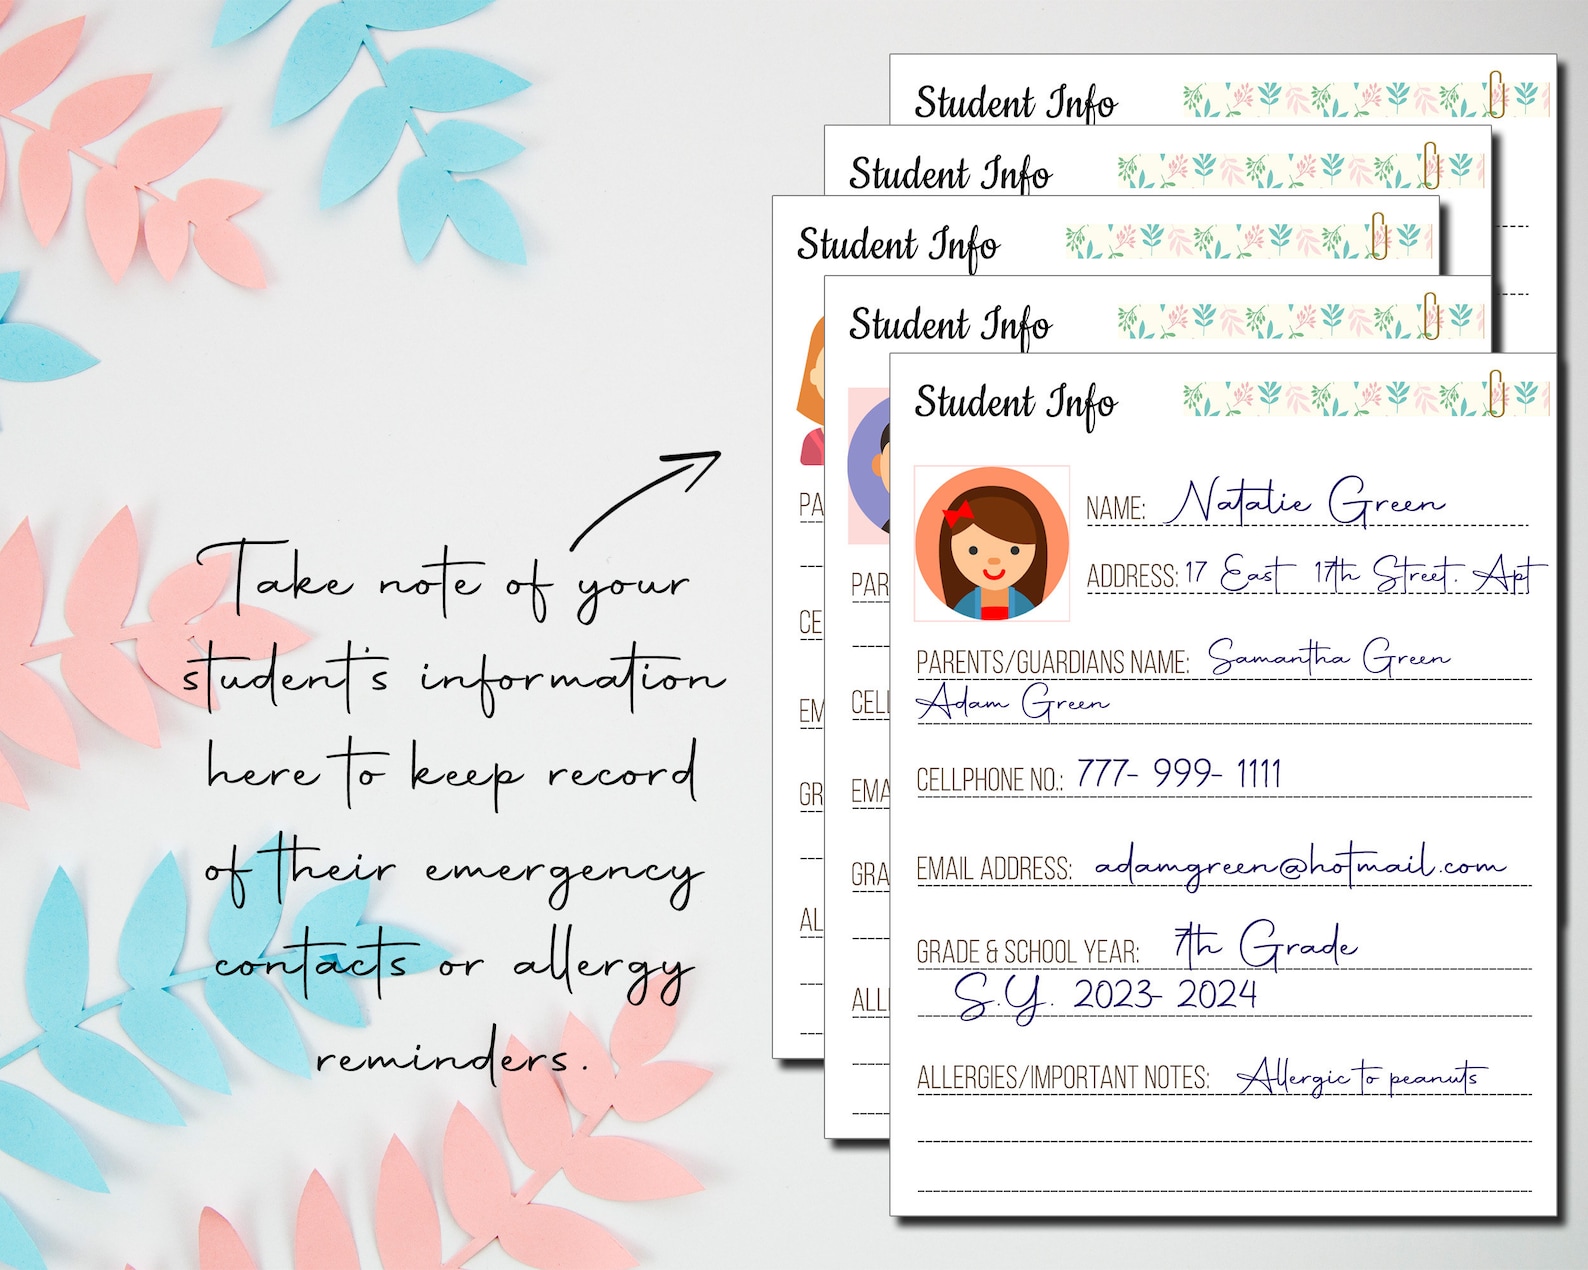 Take note of your
student's information
here to keep record
of their emergency
contacts or allergy
reminders.
Student Info
Student Info
Student Info
PA
CE
EM
GR
AL
Student Info
PAR
CELL
EMA
GRA
ALLE
Student Info
NAME: Natalie Green
ADDRESS: 17 East 17th Street. Apt
PARENTS/GUARDIANS NAME: Samantha Green
Adam Green
CELLPHONE NO.: 777- 999- 1111
EMAIL ADDRESS: adamgreen@hotmail.com
GRADE & SCHOOL YEAR: 7th Grade
S.Y. 2023- 2024
ALLERGIES/IMPORTANT NOTES: Allergic to peanuts